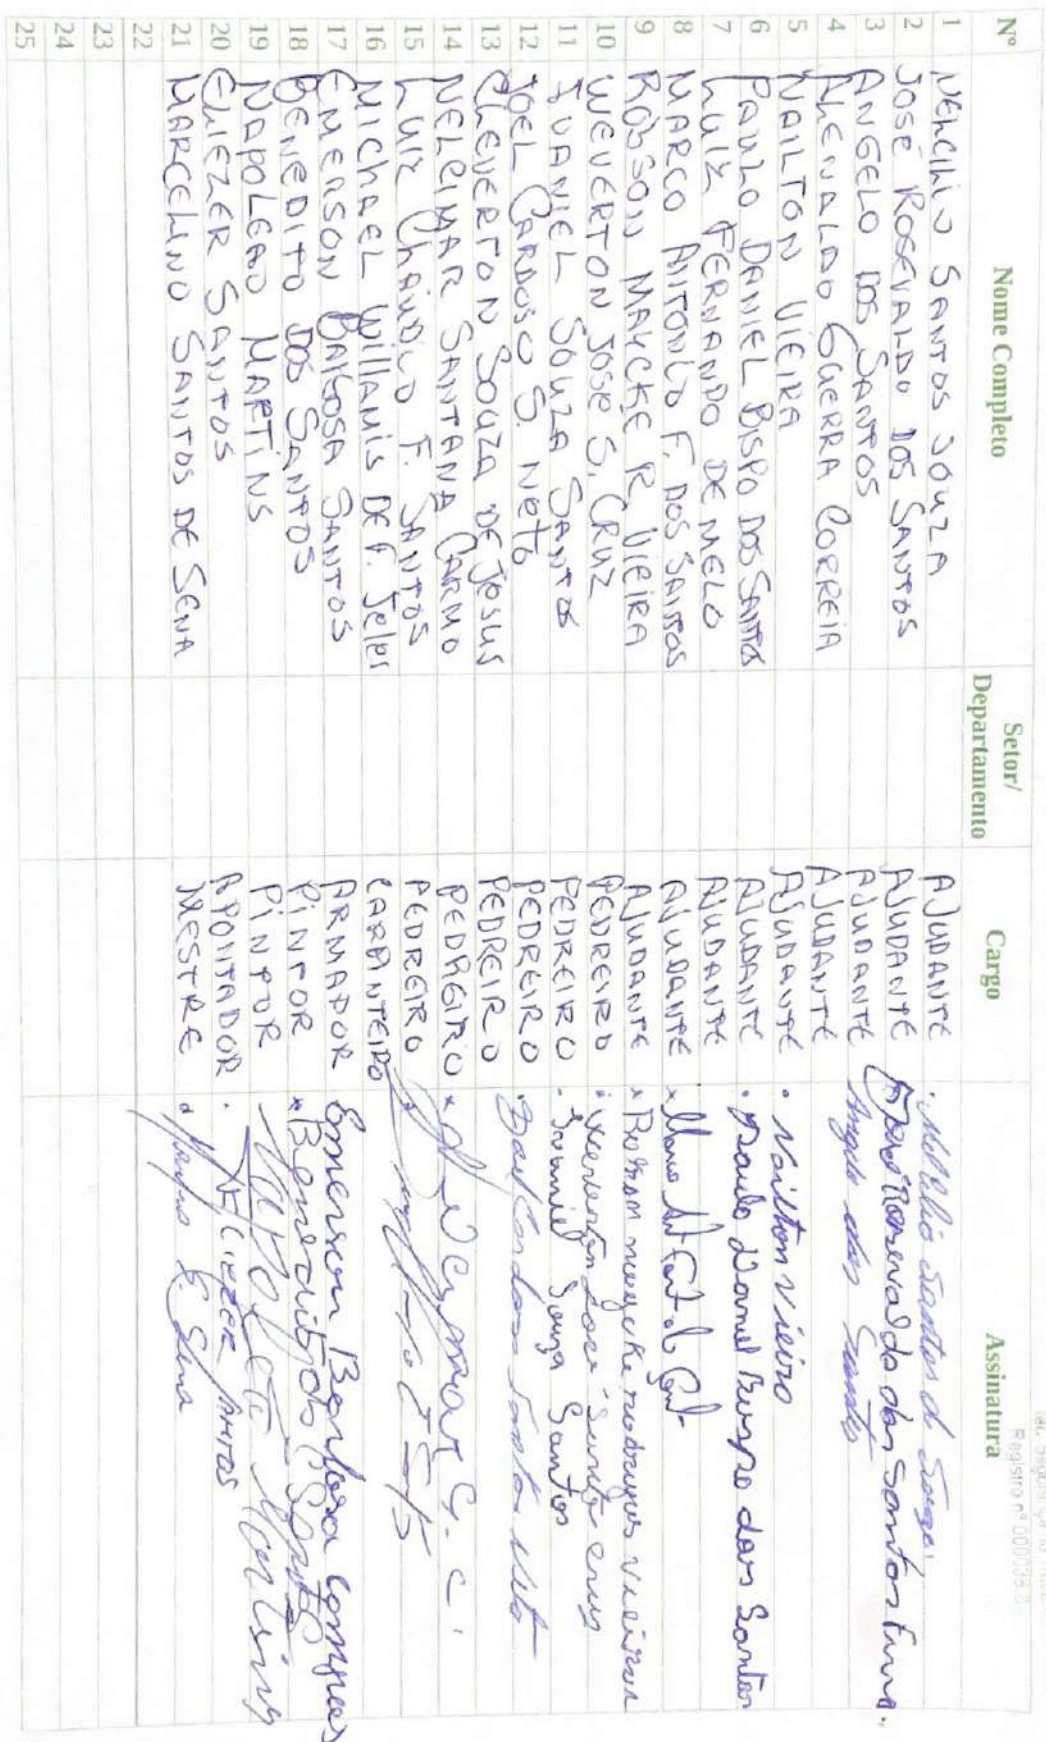 Registro nº 000038.8
Nº Nome Completo Setor/ Departamento Cargo Assinatura
1 NELCILIO SANTOS SOUZA AJUDANTE
2 JOSÉ ROSEVALDO DOS SANTOS AJUDANTE José Rosevaldo dos Santos
3 ANGELO DOS SANTOS AJUDANTE Angelo dos Santos
4 ALENALDO GUERRA CORREIA AJUDANTE
5 NAILTON VIEIRA AJUDANTE Nailton vieira
6 PAULO DANIEL BISPO DOS SANTOS AJUDANTE Paulo Daniel Bispo dos Santos
7 LUIZ FERNANDO DE MELO AJUDANTE
8 MARCO ANTONIO F. DOS SANTOS AJUDANTE
9 ROBSON MAYCKE R. VIEIRA AJUDANTE Robson maycke rodrigues vieira
10 WEVERTON JOSE S. CRUZ PEDREIRO Weverton José Santos cruz
11 IVANIEL SOUZA SANTOS PEDREIRO Ivaniel Souza Santos
12 JOEL CARDOSO S. NETO PEDREIRO Joel Cardoso Santos Neto
13 CLEVERTON SOUZA DE JESUS PEDREIRO
14 NELCIMAR SANTANA CARMO PEDREIRO
15 LUIZ CLAUDIO F. SANTOS PEDREIRO
16 MICHAEL WILLAMIS DE F. TELES CARPINTEIRO
17 EMERSON BARBOSA SANTOS ARMADOR Emerson Barbosa
18 BENEDITO DOS SANTOS PINTOR Benedito dos Santos
19 NAPOLEAO MARTINS PINTOR Napoleão Martins
20 ELIEZER SANTOS APONTADOR ELIEZER SANTOS
21 MARCELINO SANTOS DE SENA MESTRE
22
23
24
25